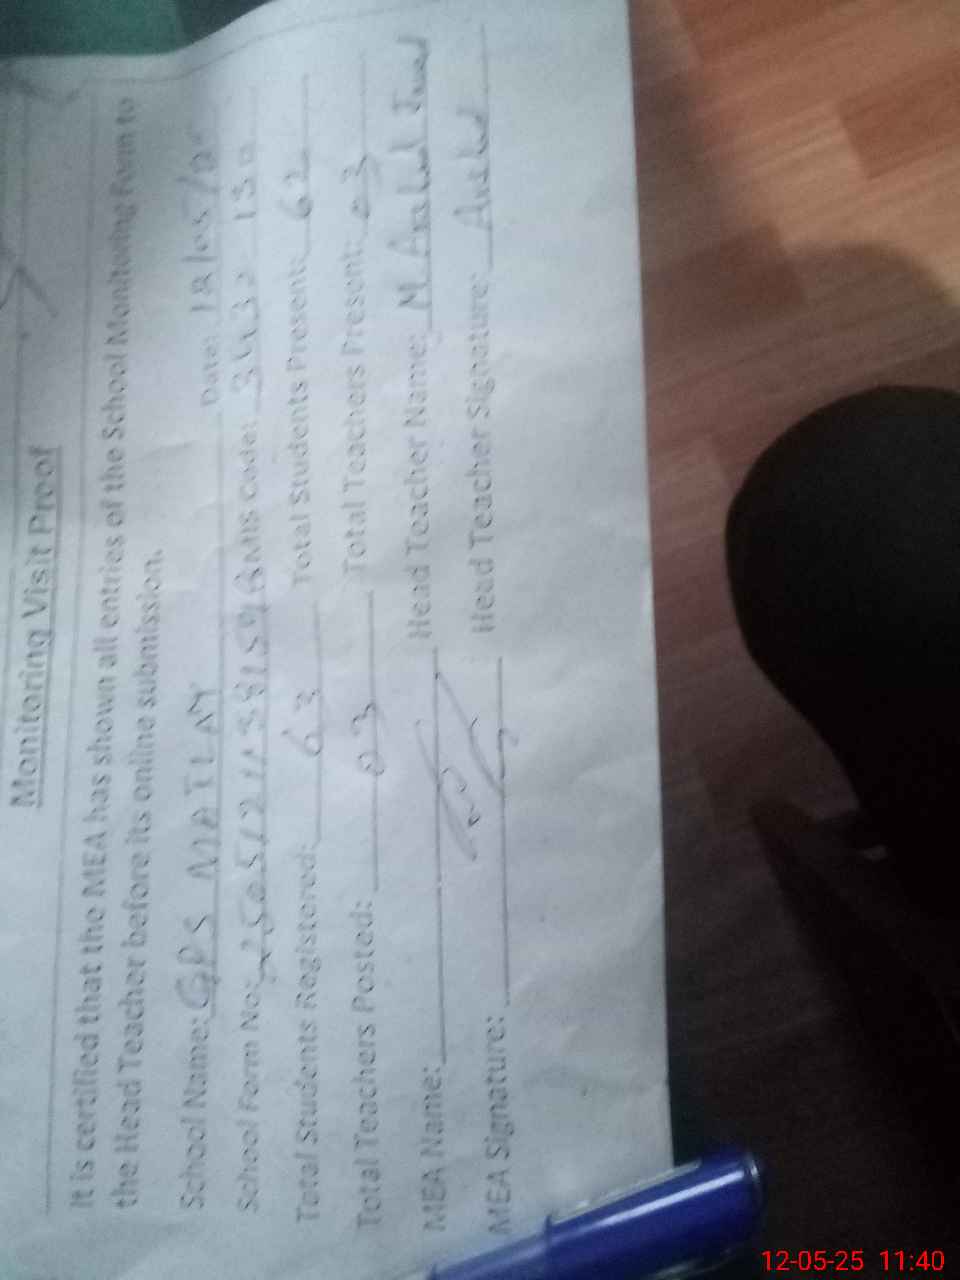 Monitoring Visit Proof
It is certified that the MEA has shown all entries of the School Monitoring Form to
the Head Teacher before its online submission.
School Name: GPS MAILAY Date: 12/05/25
School Form No: EMIS Code: 34132
Total Students Registered: 63 Total Students Present: 62
Total Teachers Posted: 03 Total Teachers Present: 03
MEA Name: Head Teacher Name: M
MEA Signature: Head Teacher Signature:
12-05-25 11:40